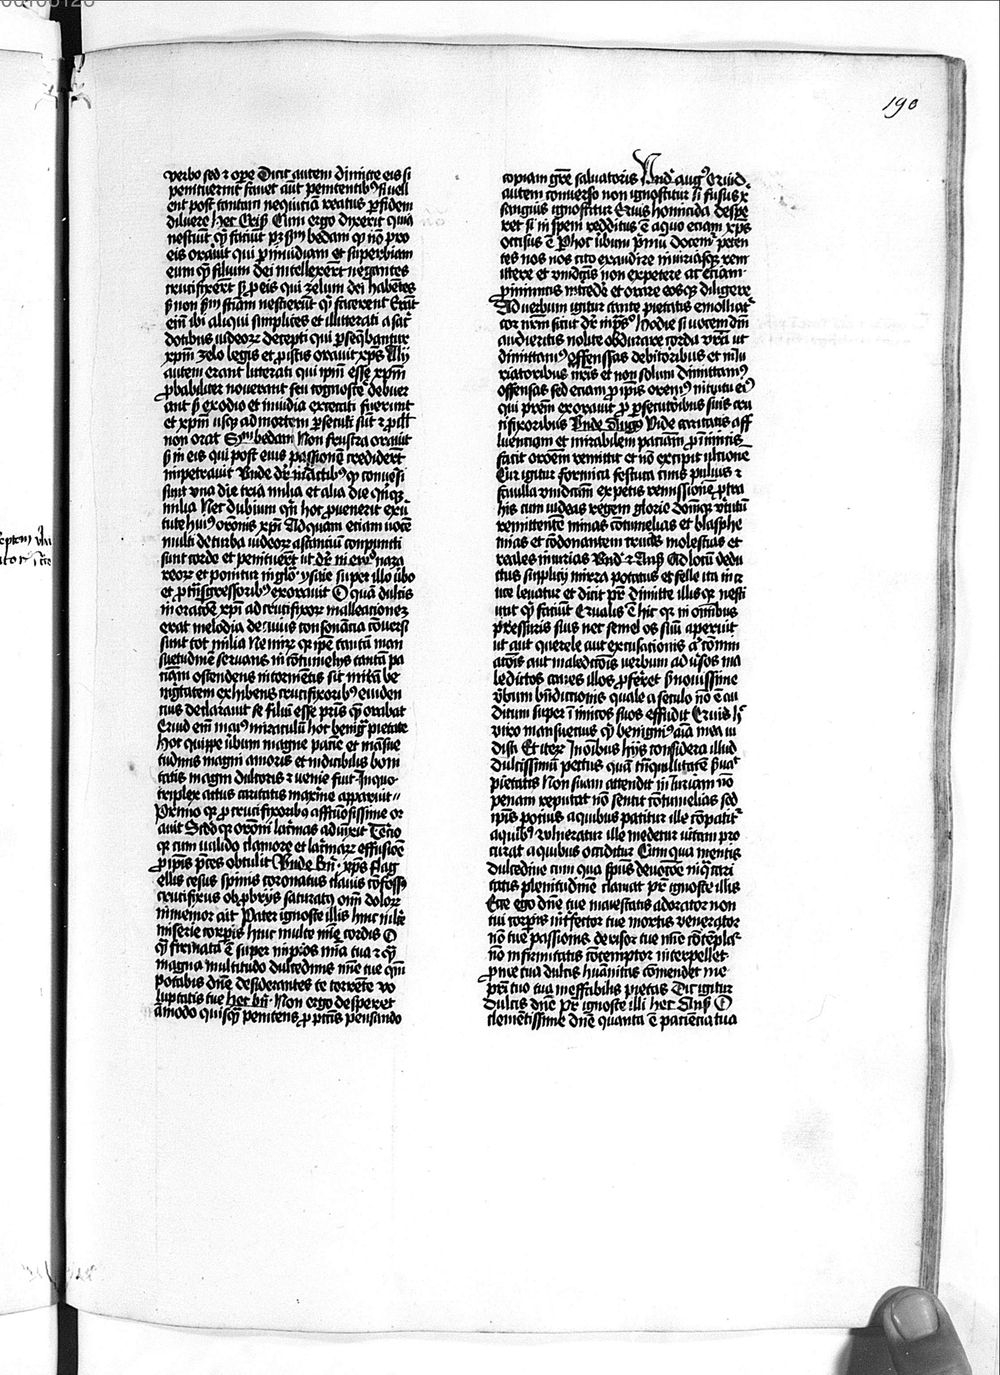 190
verbo sed et ope Dicit autem dimitte eis si
penituerint favet aut penitentibus si vell
ent post tantam nequitia reatus per fidem
diluere Hec Cris Cum ergo dixerit quia
nesciunt quid faciunt
eis oravit qui per invidiam et superbiam
eum quem filium dei intellexerunt negantes
crucifixerunt sed pro eis qui zelum dei habentes
sed non scientiam nescierunt quid facerent Erant
enim ibi aliqui simplices et illitterati a sacer
dotibus iudeorum decepti qui persequebantur
xpm zelo legis et pro istis oravit xps Alij
autem erant litterati qui ipsum esse xpm
probabiliter noverant seu cognoscere debuer
ant sed ex odio et invidia excecati fuerunt
et xpm usque ad mortem persecuti sunt et pro illis
non orat bedam Non frustra oravit
sed in eis qui post eius passionem crediderunt
impetravit Unde
sunt una die tria milia et alia die quinque
milia Nec dubium quin hoc provenerit ex vir
tute huius orationis xpi Ad quam etiam vocem
multi de turba iudeorum astantium compuncti
sunt corde et penituerunt ut
et ponitur in glo ysaie super illo verbo
et pro transgressoribus exoravit O quam dulcis
in oratione xpi ad crucifixorum malleationem
erat melodia de cuius consonantia conversi
sunt tot milia Nec mirum quia ipse tantam man
suetudinem servans in contumelijs tantam pa
tientiam ostendens in tormentis sic mitam be
nignitatem exhibens crucifixoribus eviden
tius declaravit se filium esse patris quem orabat
Quid enim maius miraculum hoc benigne pietate
Hoc quippe verbum magne patientie et mansue
tudinis magni amoris et indicibilis boni
tatis magni dulcoris et venie fuit In quo
triplex actus caritatis maxime apparuit
Primo quia pro crucifixoribus affectuosissime or
avit Secundo quia orationi lacrimas adiunxit Tercio
quia cum valido clamore et lacrimarum effusione
pro ipsis preces obtulit Unde Ber xps flag
ellis cesus spinis coronatus clavis confossus
crucifixus obprobrijs saturatus omnium dolorum
immemor ait Pater ignosce illis hinc multe
miserie corporis hinc multe misericordie cordis O
quam firmata est super impios misericordia tua et quam
magna multitudo dulcedinis misericordie tue quoniam
potabis domine desiderantes te torrente vo
luptatis tue Hec ber Non ergo desperet
amodo quisquam penitens pro peccatis pensando
copiam gratie salvatoris Unde aug Si vid
autem converso non ignoscitur si fusus xpi
sanguis ignoscitur Cuius homicida despe
ret si in spem redditus est a quo etiam xps
occisus est Per hoc verbum primum docemur peten
tes nos nos cito exaudire iniuriasque rem
ittere et vindictam non expetere at etiam
pro inimicis intendere et orare eosque diligere
Ad verbum igitur tante pietatis emolliat
cor nostrum sicut dicit Hodie si vocem domini
audieritis nolite obdurare corda vestra ut
dimittamus offensas debitoribus et iniu
riatoribus nostris et non solum dimittamus
offensas sed etiam pro ipsis oremus intuitu eius
qui patrem exoravit pro persecutoribus suis cru
cifixoribus Unde Augus Vide caritatis aff
luentiam et mirabilem patientiam pro inimicis
facit orationem remittit et non exercet ultionem
Cur igitur formica festuca cinis pulvis et
favilla vindictam expetis remissionem
cum videas regem glorie dominumque virtutum
remittentem minas contumelias et blasphe
mias et condonantem crucis molestias et
reales iniurias Unde et Ans Ad locum dedu
ctus supplicij mirra potatus et felle ita in cr
uce levatur et dicit pater dimitte illis quia nesci
unt quid faciunt O qualis est hic qui in omnibus
pressuris suis nec semel os suum aperuit
ut aut querele aut excusationis aut commi
nationis aut maledictionis verbum ad versos ma
ledictos canes illos proferret sed novissime
verbum benedictionis quale a seculo non est au
ditum super inimicos suos effudit Quid hoc
viro mansuetius quid benignius anima mea vi
disti Et iterum In omnibus hijs considera illud
dulcissimum pectus quam tranquillitatem servat
pietatis Non suam attendit iniuriam non
penam reputat non sentit contumelias sed
ipsis potius a quibus patitur ille compatitur
a quibus vulneratur ille medetur vitam pro
curat a quibus occiditur Cum qua mentis
dulcedine cum qua spiritus devotione in qua cari
tatis plenitudine clamat pater ignosce illis
Ecce ego domine tue maiestatis adorator non
tui corporis interfector tue mortis venerator
non tue passionis derisor tue misericordie contemplator
non infirmitatis contemptor interpellet
pro me tua dulcis humanitas commendet me
patri tuo tua ineffabilis pietas Dic igitur
dulcis domine pater ignosce illi hec Ans O
clementissime domine quanta est patientia tua